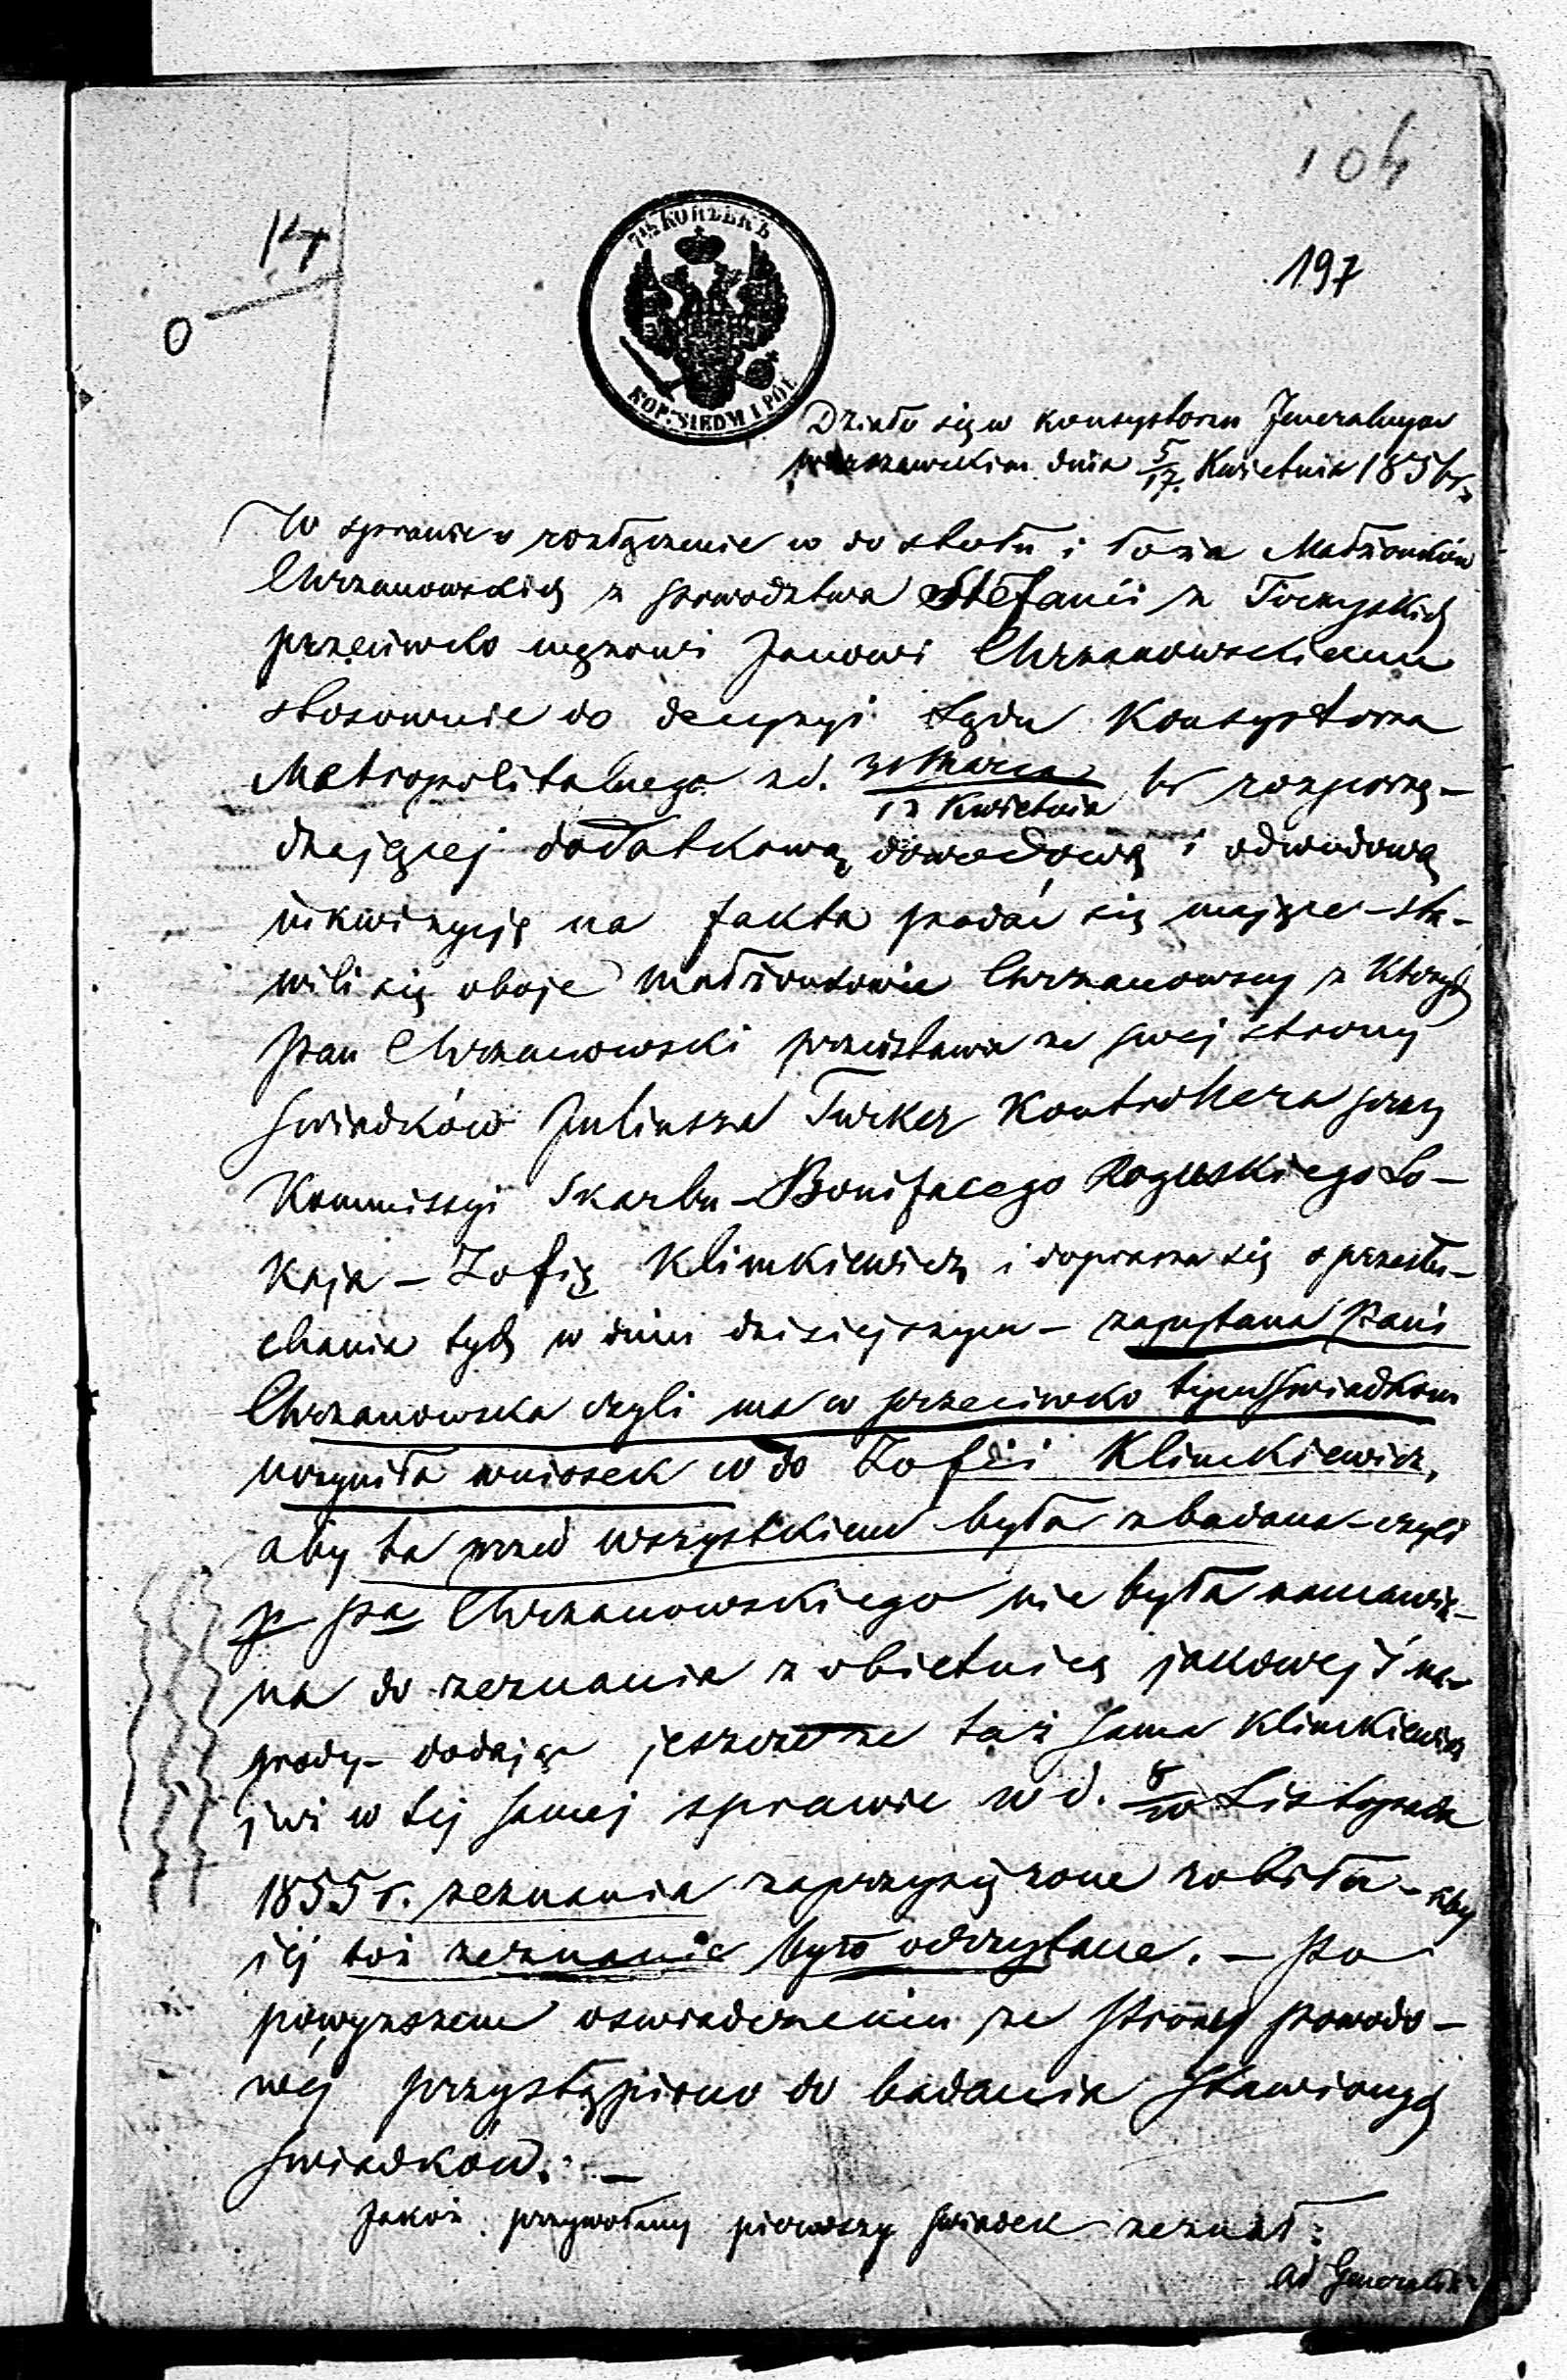 104
14
0
197
7½ КОПѢЕКЪ
KOP. SIEDM I PÓŁ
Działo się w Konsystorzu Jeneralnym
Warszawskim dnia 5/17. Kwietnia 1856 r.
W sprawie o rozłączenie w do stołu i łoża Małżonków
Chrzanowskich z powodztwa Stefanii z Toczyskich
przeciwko mężowi Janowi Chrzanowskiemu
stosownie do decyzyi Sądu Konsystorza
Metropolitalnego z d. 31 Marca / 12 Kwietnia br rozporzą-
dzającej dodatkową dowodową i odwodową
inkwizycją na fakta podać się mające – sta-
wili się oboje Małżonkowie Chrzanowscy z których
Pan Chrzanowski przedstawia ze swej strony
świadków Juliusza Turker Kontrollera przy
Kommissyi Skarbu – Bonifacego Roguskiego Lo-
kaja – Zofię Klimkiewicz i doprasza się o przesłu-
chanie tych w dniu dzisiejszym – zapytana Pani
Chrzanowska czyli ma w przeciwko tym świadkom
uczyniła wniosek w do Zofii Klimkiewicz,
aby ta przed wszystkiem była zbadana – czyli
p pa Chrzanowskiego nie była namawia-
na do zeznania z obietnicą jakowejś na-
grody – dodając jeszcze że taż sama Klimkiewicz
już w tej samej sprawie w d. 8/20 Listopada
1855 r. zeznania zaprzysiężone robiła – aby
jej toż zeznanie było odczytane. – Po
powyższem oswiadczeniu ze strony powodo-
wej przystąpiono do badania stawionych
świadków. –
Jakoż przywołany pierwszy świadek zeznał:
Ad Generalia